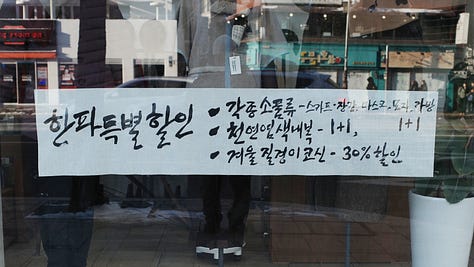 한파특별할인
• 각종소품류 - 스카프, 장갑, 마스크, 모자, 가방
1+1
• 천연염색내복 - 1+1,
• 겨울 질경이코신 - 30% 할인